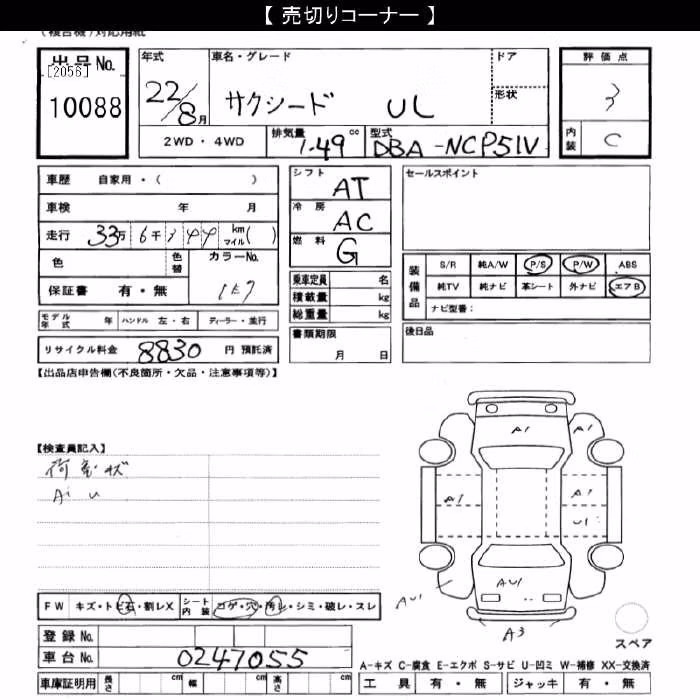 【 売切りコーナー 】
(複合機)対応用紙
出品No.
[2056]
10088
年式
22/8月
車名・グレード
サクシード UL
ドア
形状
評価点
3
内装
C
2WD・4WD
排気量
1.49 cc
型式
DBA-NCP51V
車歴 自家用・( )
車検 年 月
走行 33万 6千 km マイル( )
色
色替
カラーNo.
保証書 有・無
モデル年式 年 ハンドル 左・右 ディーラー・並行
リサイクル料金 8830 円 預託済
シフト AT
冷房 AC
燃料 G
乗車定員 名
積載量 kg
総重量 kg
書類期限
月 日
セールスポイント
装備品
S/R 純A/W P/S P/W ABS
純TV 純ナビ 革シート 外ナビ エアB
ナビ型番:
後日品
【出品店申告欄(不良箇所・欠品・注意事項等)】
【検査員記入】
A1 U
A1
A1
A1
A1
U1
AU1
AU1
A3
スペア
FW キズ・トビ石・割レX シート内装 コゲ・穴・汚レ・シミ・破レ・スレ
登録No.
車台No. 0247055
車庫証明用 長さ cm 幅 cm 高さ cm
A-キズ C-腐食 E-エクボ S-サビ U-凹ミ W-補修 XX-交換済
工具 有・無 ジャッキ 有・無